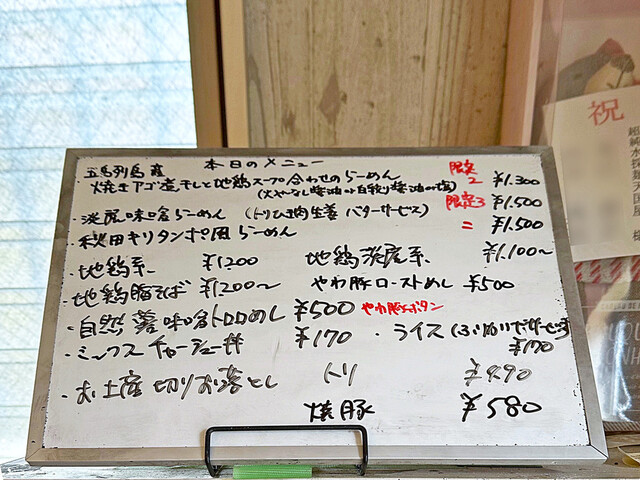 本日のメニュー
五島列島産
焼きアゴ煮干しと地鶏スープ合わせのらーめん 限定2 ¥1.300
淡麗味噌らーめん (トリひき肉生姜 バターサービス) 限定3 ¥1.500
秋田キリタンポ風らーめん 〃 ¥1.500
地鶏系 ¥1200 地鶏淡麗系 ¥1.100〜
地鶏豚そば ¥1200〜 やわ豚ローストめし ¥500
自然薯味噌トロロめし ¥500
ミックスチャーシュー丼 ¥170 ・ライス
¥170
・お土産 切りお落とし トリ ¥490
焼豚 ¥580
祝